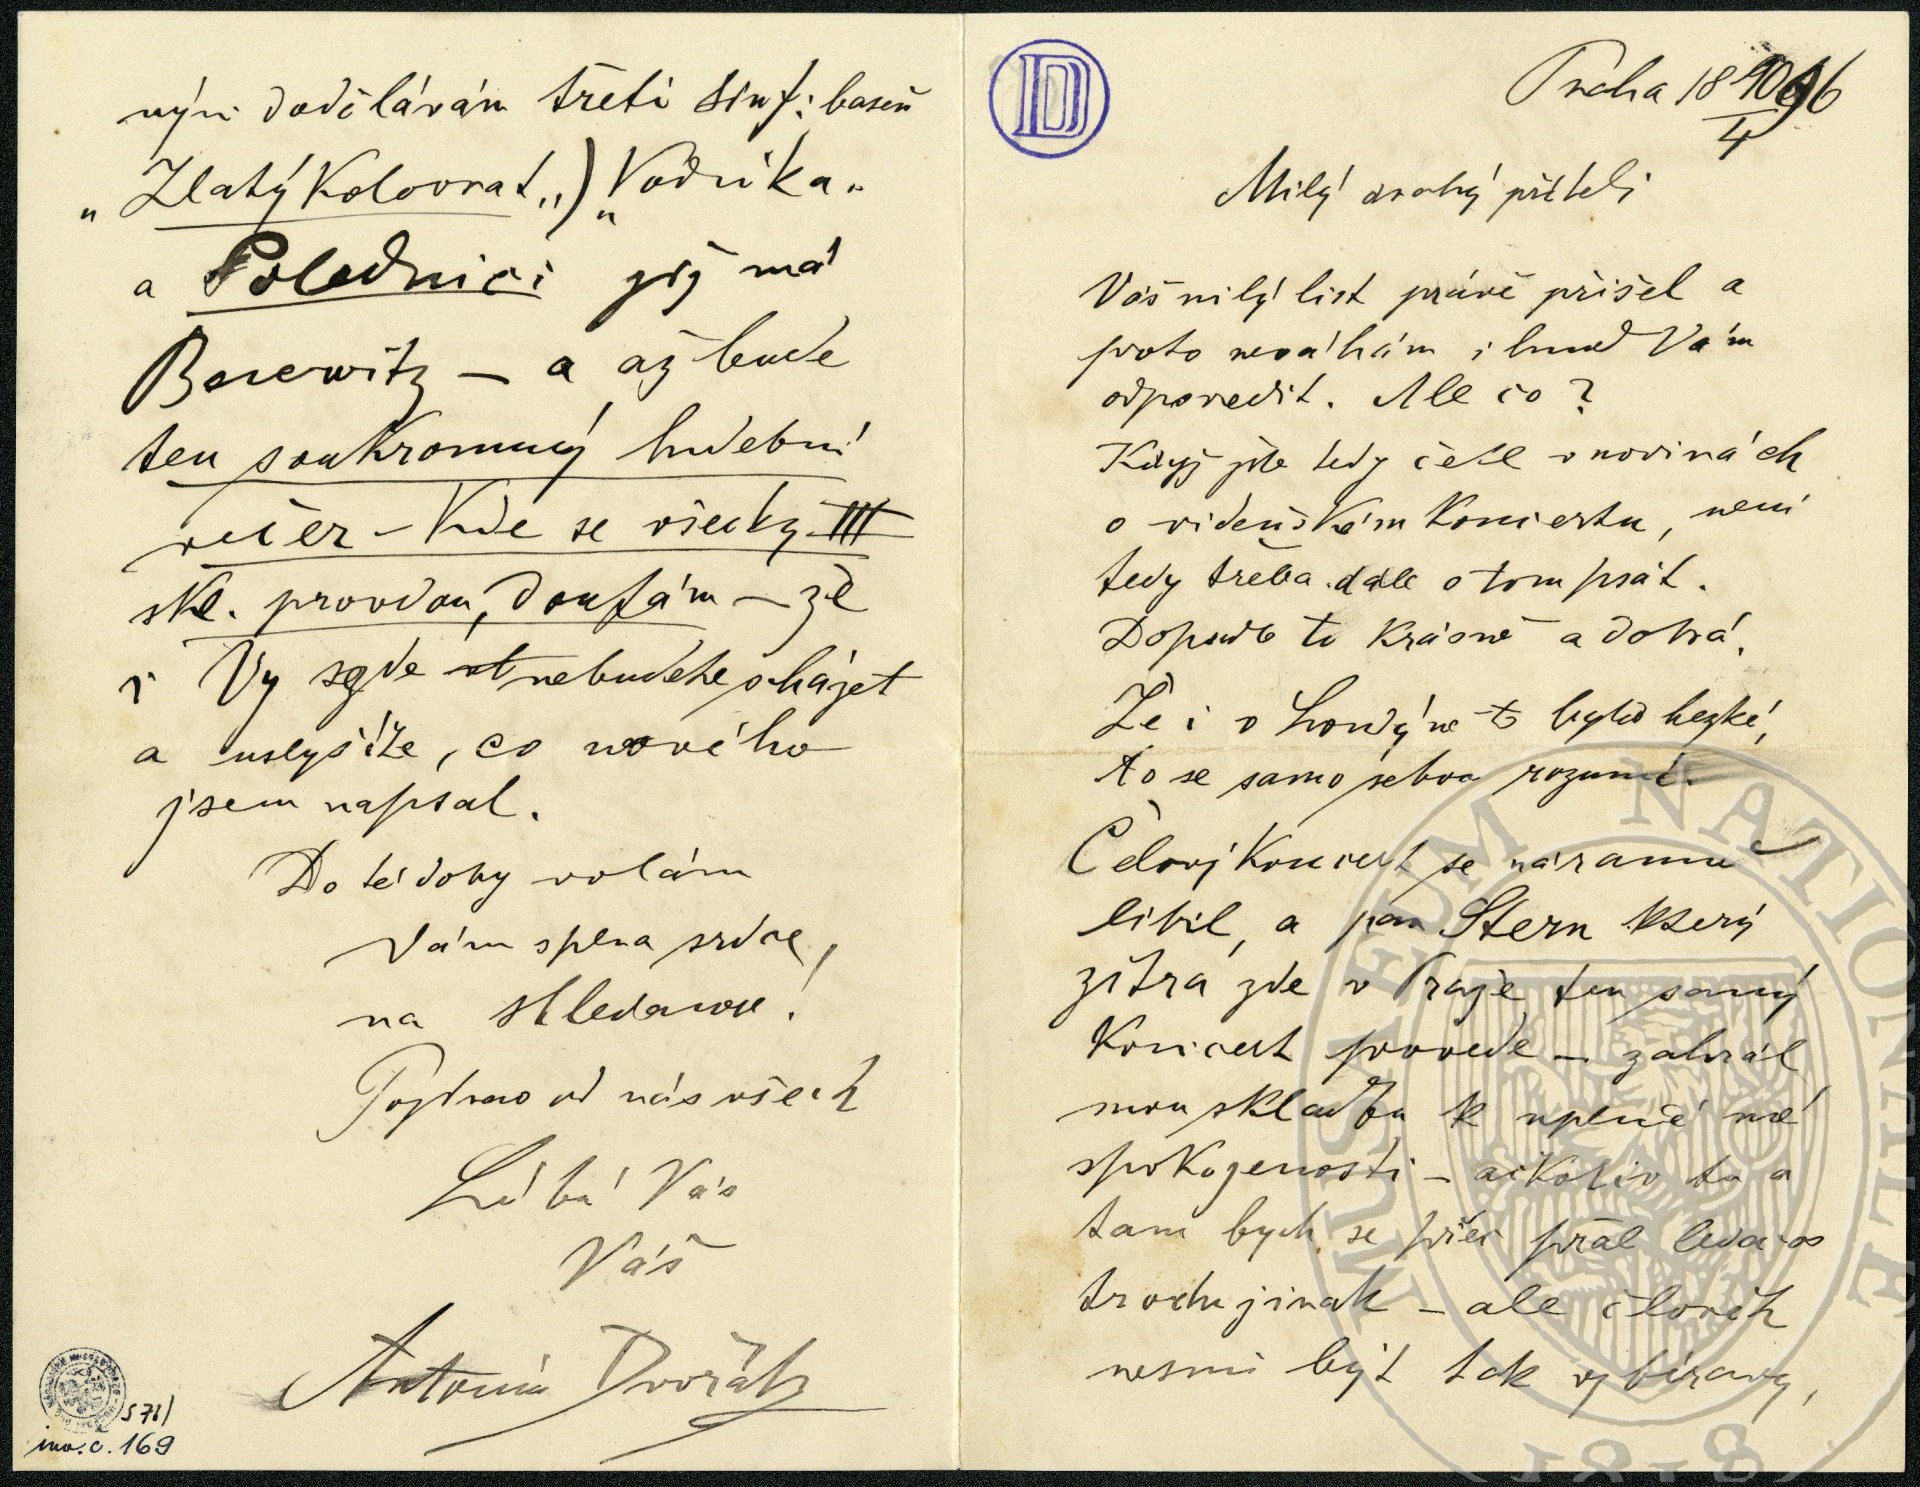 Praha 18 10/4 96
Milý drahý příteli
Váš milý list právě přišel a
proto neváhám ihned Vám
odpovedit. Ale co?
Když jste tedy četl v novinách
o vídeňském koncertu, není
tedy třeba dále o tom psát.
Dopadlo to krásně a dobrá.
Že i v Londýne to bylo hezké,
to se samo sebou rozumí.
Čelový koncert se náramně
líbil, a pan Stern který
zítra zde v Praze ten samý
koncert provede – zahrál
mou skladbu k uplné mé
spokojenosti – ačkoliv tu a
tam bych se přec přál ledacos
trochu jinak – ale člověk
nesmí být tak vybíravy,
nýni dodělávám třetí sinf: baseň
„Zlatý Kolovrat„) „Vodníka"
a Polednici již má
Borowitz – a až bude
ten soukromný hudební
večer – kde se všecky III
skl. provdou, doufám – že
i Vy szde nebudete scházet
a uslyšíte, co nového
jsem napsal.
Do té doby volám
Vám splna srdce,
na shledanou!
Pozdrav od nás všech
Líbá Vás
Váš
Antonín Dvořák
S 76/
inv. č. 169
D
MUSAEUM NATIONALE
1818